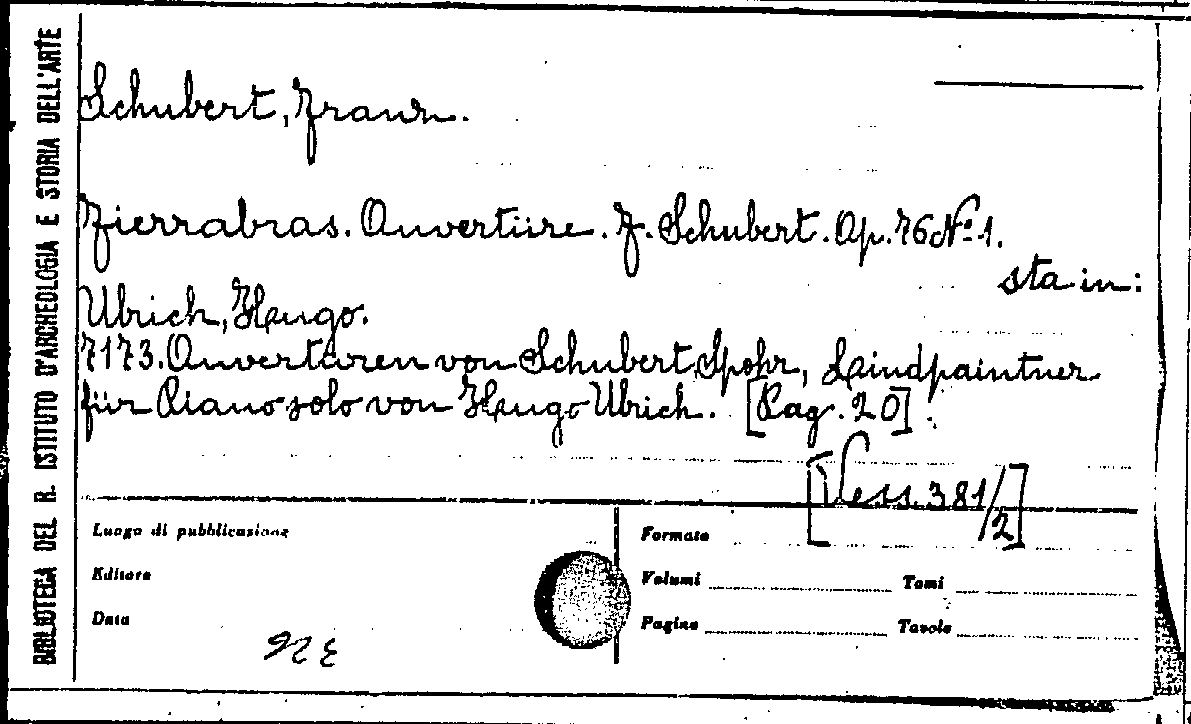 BIBLIOTECA DEL R. ISTITUTO D'ARCHEOLOGIA E STORIA DELL'ARTE
Schubert, Franz.
Fierrabras. Ouvertüre. F. Schubert. Op. 76 No. 1.
sta in:
Ulrich, Hugo.
7173. Ouverturen von Schubert, Spohr, Lindpaintner
für Piano solo von Hugo Ulrich. [Pag. 20].
[Vess. 381/2]
Luogo di pubblicazione
Formato
Editore
Volumi
Tomi
Data
Pagine
Tavole